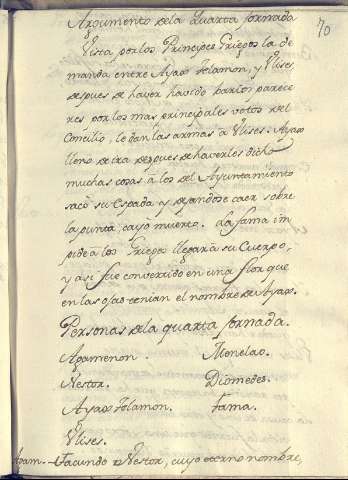 70
Argumento dela Quarta Jornada
Vista por los Principes Griegos la de
manda entre Ayax Telamon, y Ulises
despues de haver havido barios parece
res por los mas principales votos del
Concilio, le dan las armas a Ulises. Ayax
lleno de ira despues de haverles dicho
muchas cosas a los del Ayuntamiento
sacó su Espada y dejandose caer sobre
la punta cayó muerto. La fama im
pide a los Griegos llegar a su Cuerpo,
y asi fue convertido en una flor que
en las ojas tenian el nombre de Ayax.
Personas dela quarta Jornada.
Agamenon. Menelao.
Nestor. Diomedes.
Ayax Telamon. Fama.
Ulises.
Agam. Facundo Nestor, cuyo eterno nombre,